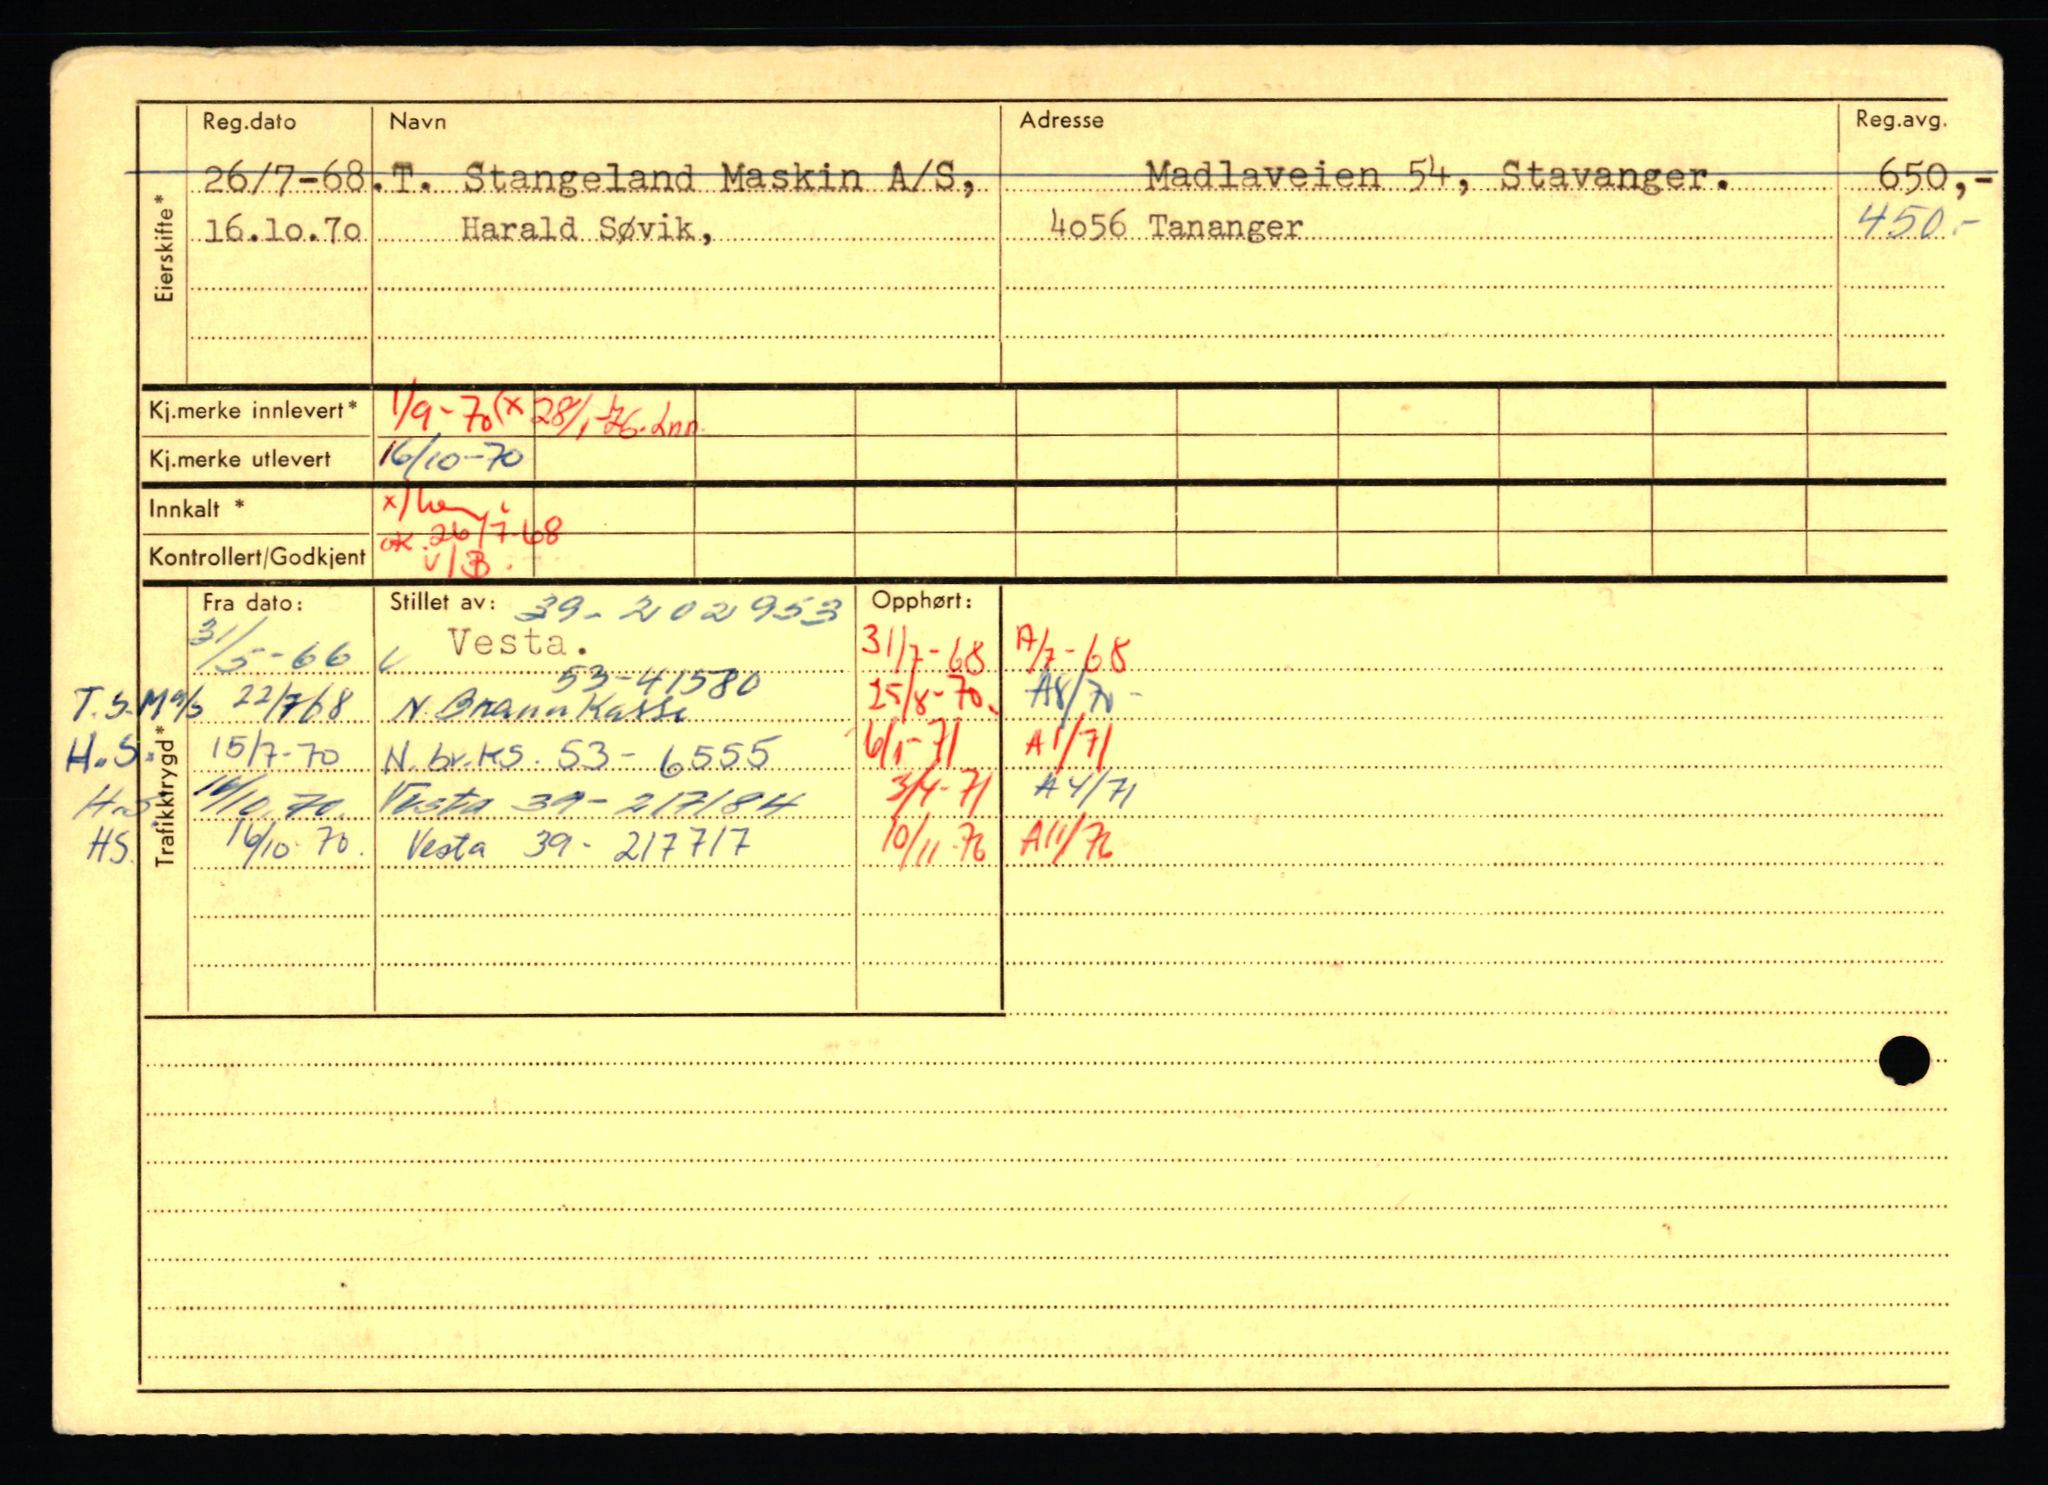 Reg.dato Navn Adresse Reg.avg.
26/7-68. T. Stangeland Maskin A/S, Madlaveien 54, Stavanger. 650,-
16.10.70 Harald Søvik, 4056 Tananger 450.-
Eierskifte*
Kj.merke innlevert* 1/9-70 (x 28/1-76. Inn.
Kj.merke utlevert 16/10-70
Innkalt * x/
ok. 26/7-68
Kontrollert/Godkjent v/B.
Fra dato: Stillet av: 39-202953 Opphørt:
31/5-66 Vesta. 31/7-68 A/7-68
53-41580
T.S.M a/s 22/7 68 N. Brann Kasse 25/8-70. A8/70-
H.S. 15/7-70 N. br.ks. 53-6555 6/1-71 A1/71
H.S. 16/10.70. Vesta 39-217184 3/4-71 A4/71
HS. 16/10-70. Vesta 39-217717 10/11-76 A11/76
Trafikktrygd*